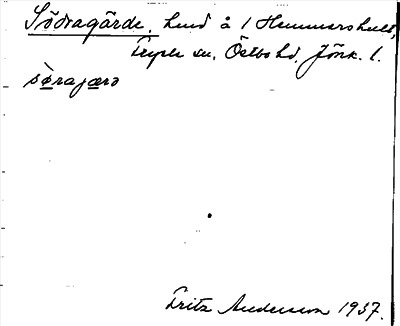 Södragärde, hmd å 1 Hemmarshult,
Tryple sn, Östbo hd, Jönk. l.
sø̀rajærd
Fritz Anderson 1937.